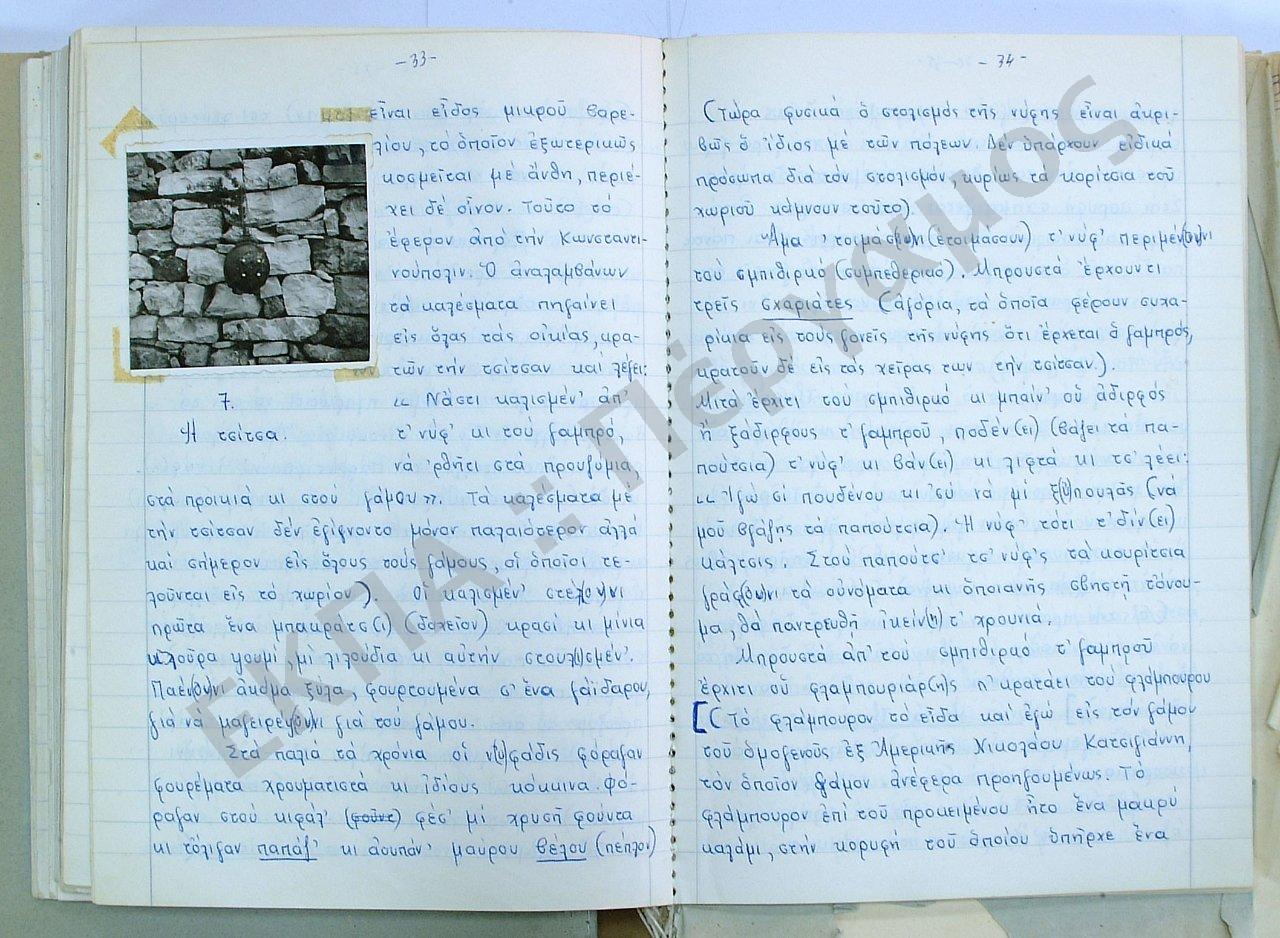 -33-
εἶναι εἶδος μικροῦ βαρε-
λίου, τὸ ὁποῖον ἐξωτερικῶς
κοσμεῖται μὲ ἄνθη, περιέ-
χει δὲ οἶνον. Τοῦτο τὸ
ἔφερον ἀπὸ τὴν Κωνσταντι-
νούπολιν. Ὁ ἀναλαμβάνων
τὰ καλέσματα πηγαίνει
εἰς ὅλας τὰς οἰκίας, κρα-
τῶν τὴν τσίτσαν καὶ λέγει:
7.
Ἡ τσίτσα.
"Νἄστι καλισμέν' ἀπ'
τ' νύφ' κι τοὺ γαμπρό,
νὰ 'ρθῆτι στὰ προυζύμια,
στὰ προικιὰ κι στοὺ γάμου". Τὰ καλέσματα μὲ
τὴν τσίτσαν δὲν ἐγίγνοντο μόνον παλαιότερον ἀλλὰ
καὶ σήμερον εἰς ὅλους τοὺς γάμους, οἱ ὁποῖοι τε-
λοῦνται εἰς τὸ χωρίον). Οἱ καλισμέν' στέλ(ου)νι
πρῶτα ἕνα μπακράτσ(ι) (δοχεῖον) κρασὶ κι μίνια
κλούρα ψουμί, μὶ λιλούδια κι αὐτὴν στουλ(ι)σμέν'.
Παέν(ου)νι ἀκόμα ξύλα, φουρτουμένα σ' ἕνα γάϊδαρου,
γιὰ νὰ μαγειρέψ(ου)νι γιὰ τοὺ γάμου.
Στὰ παλιὰ τὰ χρόνια οἱ ν(υ)φάδις φόραγαν
φουρέματα χρουματιστὰ κι ἰδίους κόκκινα. Φό-
ραγαν στοὺ κιφάλ' (φοῦντ) φέσ' μὶ χρυσῆ φούντα
κι τύλιγαν παπάζ' κι ἀουπάν' μαύρου βέλου (πέπλον)
-34-
(Τώρα φυσικὰ ὁ στολισμὸς τῆς νύφης εἶναι ἀκρι-
βῶς ὁ ἴδιος μὲ τῶν πόλεων. Δὲν ὑπάρχουν εἰδικὰ
πρόσωπα διὰ τὸν στολισμόν, κυρίως τὰ κορίτσια τοῦ
χωριοῦ κάμνουν τοῦτο).
Ἅμα 'τοιμάσ(ου)νι (ἑτοιμάσουν) τ' νύφ' περιμέν(ου)νι
τοὺ σμπιθιρκό (συμπεθεριό). Μπρουστὰ ἔρχουντι
τρεῖς σχαριάτες (ἀγόρια, τὰ ὁποῖα φέρουν συχα-
ρίκια εἰς τοὺς γονεῖς τῆς νύφης ὅτι ἔρχεται ὁ γαμπρός,
κρατοῦν δὲ εἰς τὰς χεῖρας των τὴν τσίτσαν).
Μιτὰ ἔρχιτι τοὺ σμπιθιρκὸ κι μπαίν' οὑ ἀδιρφὸς
ἢ ξάδιρφους τ' γαμπροῦ, ποδέν(ει) (βάζει τὰ πα-
πούτσια) τ' νύφ' κι βάν(ει) κι λιφτὰ κι τσ' λέει:
"Ἰγὼ σὶ πουδένου κι ἐσὺ νὰ μὶ ξ(υ)πουλᾶς (νὰ
μοῦ βγάλῃς τὰ παπούτσια). Ἡ νύφ' τότι τ' δίν(ει)
κάλτσις. Στοὺ παπούτσ' τσ' νύφ'ς τὰ κουρίτσια
γράφ(ου)νι τὰ οὐνόματα κι ὁποιανῆς σβηστῆ τὄνου-
μα, θὰ παντρευθῇ ἰκείν(η) τ' χρουνιά.
Μπρουστὰ ἀπ' τοὺ σμπιθιρκὸ τ' γαμπροῦ
ἔρχιτι οὑ φλαμπουριάρ(η)ς π' κρατάει τοὺ φλάμπουρου
[(Τὸ φλάμπουρον τὸ εἶδα καὶ ἐγὼ εἰς τὸν γάμον
τοῦ ὁμογενοῦς ἐξ Ἀμερικῆς Νικολάου Κατσιγιάννη,
τὸν ὁποῖον γάμον ἀνέφερα προηγουμένως. Τὸ
φλάμπουρον ἐπὶ τοῦ προκειμένου ἦτο ἕνα μακρὺ
καλάμι, στὴν κορυφὴ τοῦ ὁποίου ὑπῆρχε ἕνα
ΕΚΠΑ :: Πέργαμος